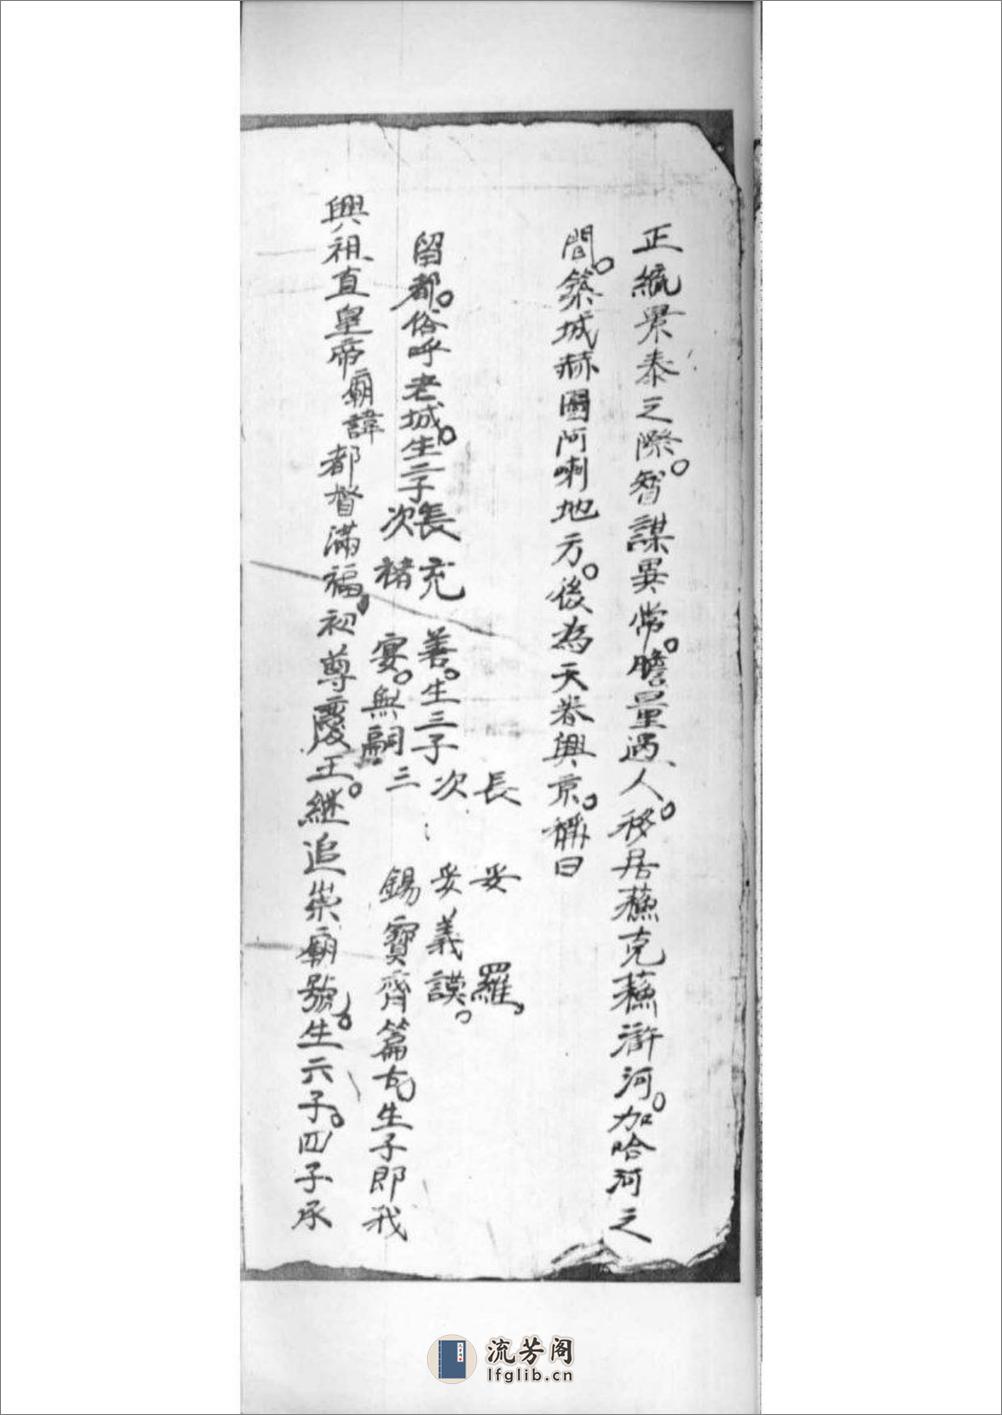 正統景泰之際。智謀異常。膽量過人。移居蘓克蘓滸河。加哈河之
間。築城赫圖阿喇地方。後為天眷興京。稱曰
留都。俗呼老城。生二子長充善。生三子長妥羅。
次妥義謨。
次褚宴。無嗣三錫寶齊篇古。生子即我
興祖直皇帝廟諱都督滿福。初尊慶王。継追崇廟號。生六子。四子承
流芳阁
lfglib.cn